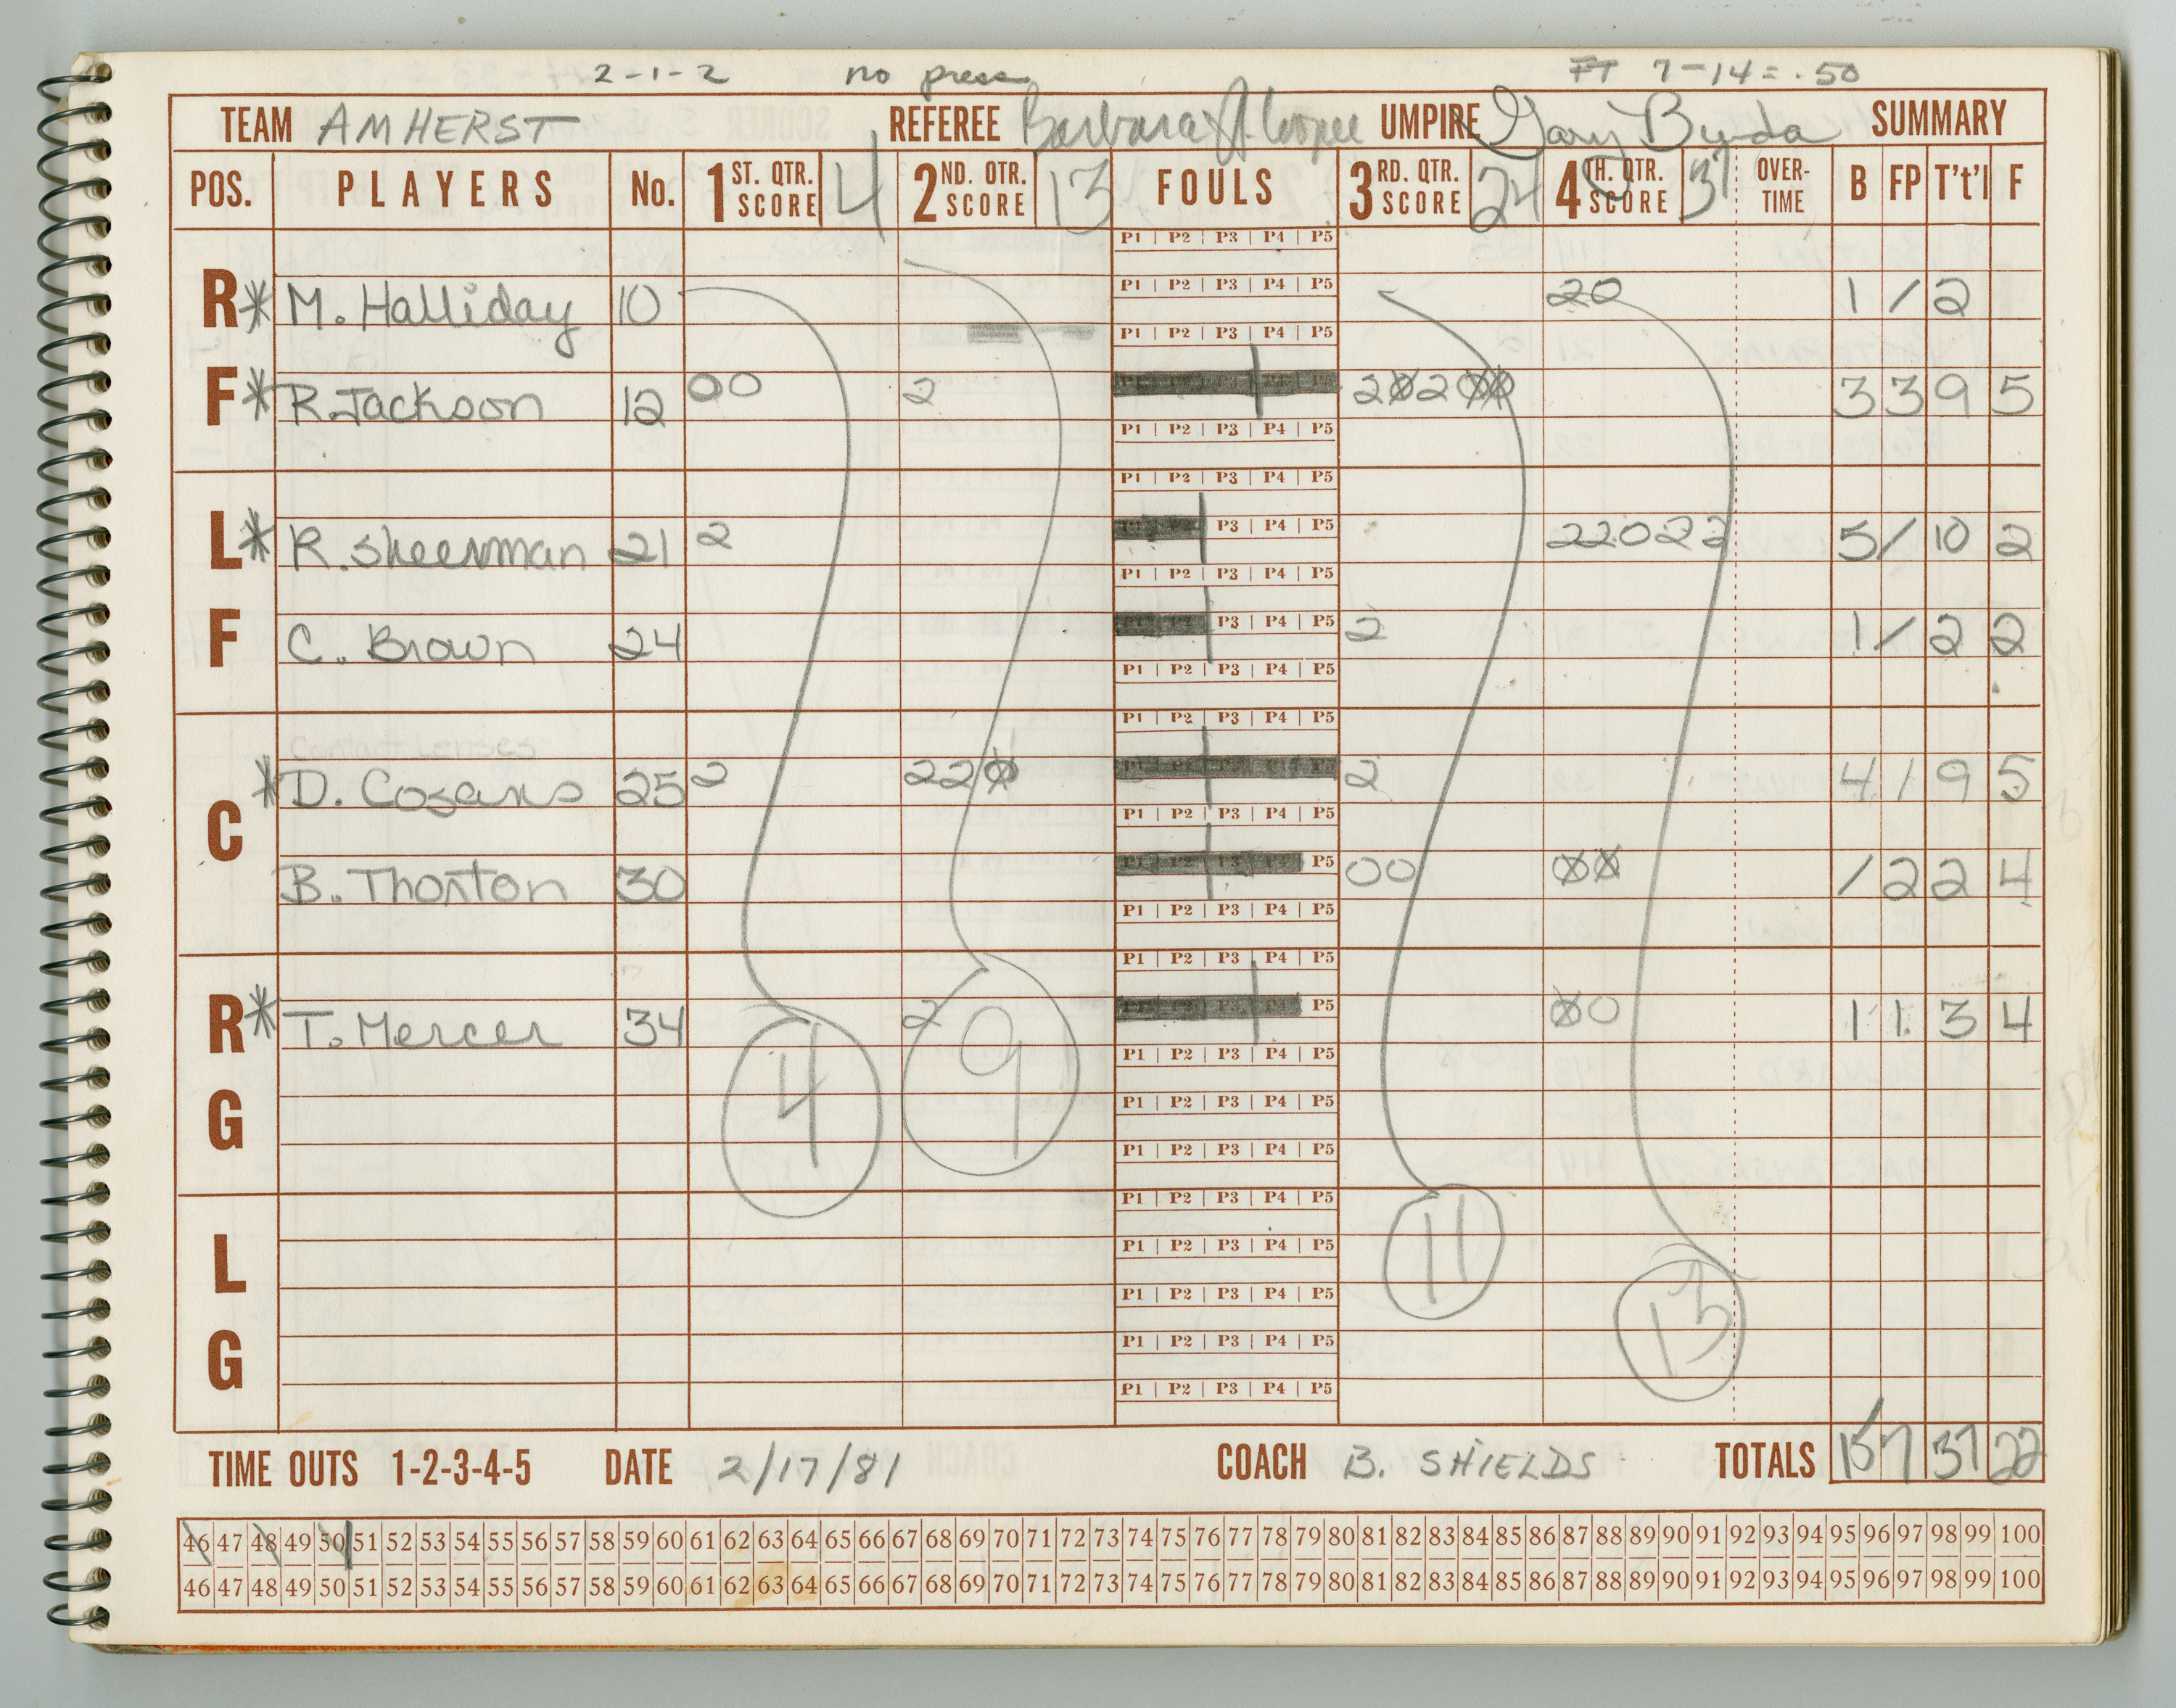 2-1-2 no press FT 7-14=.50
TEAM AMHERST REFEREE Barbara UMPIRE Gary SUMMARY
POS. PLAYERS No. 1ST. QTR. SCORE 4 2ND. QTR. SCORE 13 FOULS 3RD. QTR. SCORE 24 4TH. QTR. SCORE 37 OVER-TIME B FP T't'l F
P1 | P2 | P3 | P4 | P5
R * M. Halliday 10 P1 | P2 | P3 | P4 | P5 20 1 / 2
P1 | P2 | P3 | P4 | P5
F * R. Jackson 12 00 2 20200 3 3 9 5
P1 | P2 | P3 | P4 | P5
P1 | P2 | P3 | P4 | P5
L * R. Sheerman 21 2 P3 | P4 | P5 22022 5 / 10 2
P1 | P2 | P3 | P4 | P5
F C. Brown 24 P3 | P4 | P5 2 1 / 2 2
P1 | P2 | P3 | P4 | P5
P1 | P2 | P3 | P4 | P5
Contact Lenses
C * D. Cozans 25 2 220 2 4 1 9 5
P1 | P2 | P3 | P4 | P5
B. Thornton 30 P5 00 00 / 2 2 4
P1 | P2 | P3 | P4 | P5
P1 | P2 | P3 | P4 | P5
R * T. Mercer 34 2 P5 00 1 1 3 4
P1 | P2 | P3 | P4 | P5
G 4 9 P1 | P2 | P3 | P4 | P5
P1 | P2 | P3 | P4 | P5
P1 | P2 | P3 | P4 | P5
L 11 P1 | P2 | P3 | P4 | P5
P1 | P2 | P3 | P4 | P5
G 13 P1 | P2 | P3 | P4 | P5
P1 | P2 | P3 | P4 | P5
TIME OUTS 1-2-3-4-5 DATE 2/17/81 COACH B. SHIELDS TOTALS 15 7 37 22
46 47 48 49 50 51 52 53 54 55 56 57 58 59 60 61 62 63 64 65 66 67 68 69 70 71 72 73 74 75 76 77 78 79 80 81 82 83 84 85 86 87 88 89 90 91 92 93 94 95 96 97 98 99 100
46 47 48 49 50 51 52 53 54 55 56 57 58 59 60 61 62 63 64 65 66 67 68 69 70 71 72 73 74 75 76 77 78 79 80 81 82 83 84 85 86 87 88 89 90 91 92 93 94 95 96 97 98 99 100